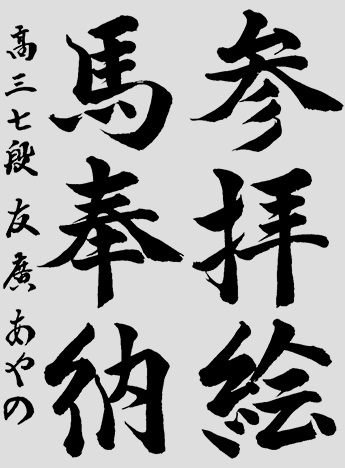 参拝絵
馬奉納
高三七段 友廣あやの